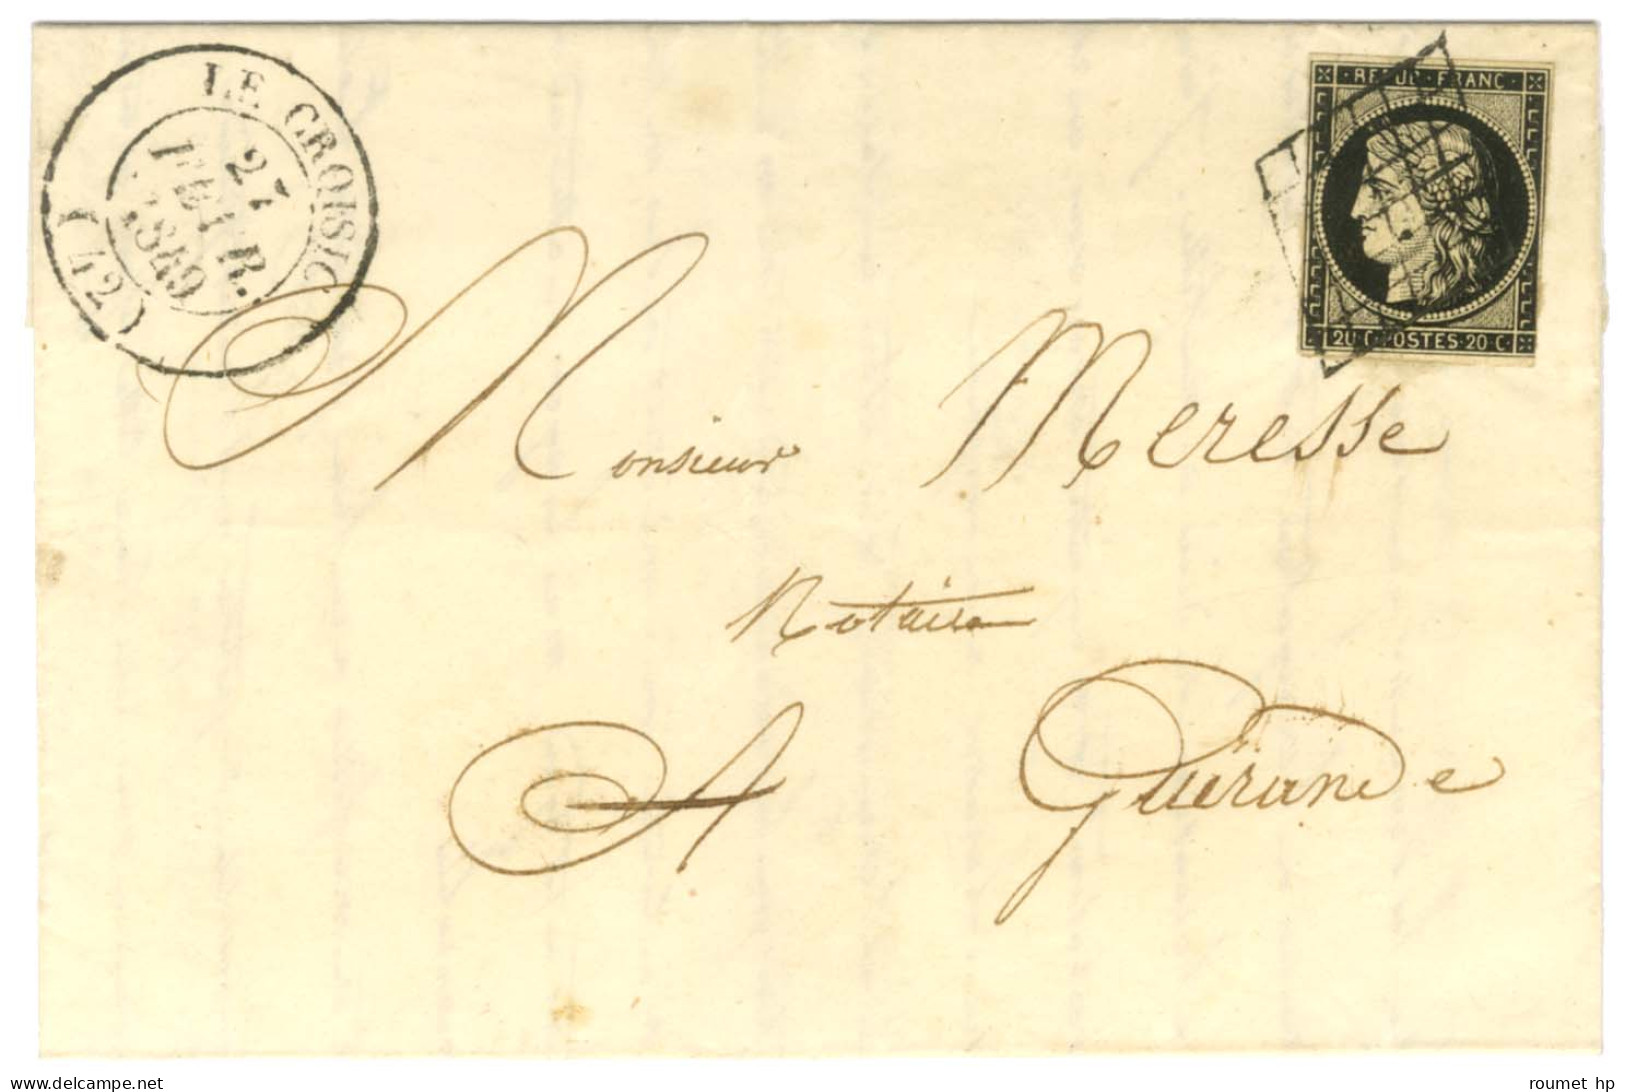 LE CROISIC
27
FEVR.
1849
(42)
REPUB·FRANC·
20·C·POSTES·20·C·
Monsieur Meresse
Notaire
A Guérande
roumet hp